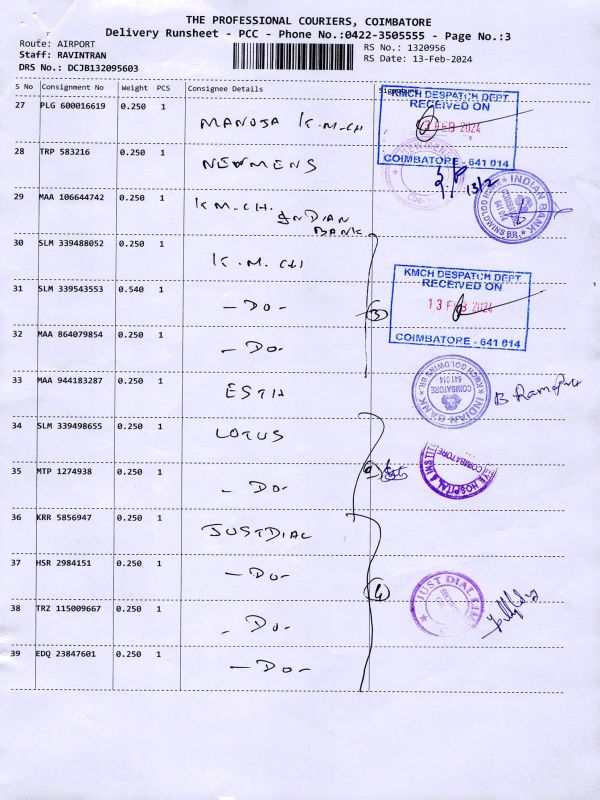 THE PROFESSIONAL COURIERS, COIMBATORE
Delivery Runsheet - PCC - Phone No.:0422-3505555 - Page No.:3
Route: AIRPORT
RS No.: 1320956
Staff: RAVINTRAN
RS Date: 13-Feb-2024
DRS No.: DCJB132095603
S No Consignment No Weight PCS Consignee Details Signature
27 PLG 600016619 0.250 1 MANOJA K.M.CH
KMCH DESPATCH DEPT
RECEIVED ON
FEB 2024
COIMBATORE - 641 014
28 TRP 583216 0.250 1 NEWMENS
13/2
29 MAA 106644742 0.250 1 KM.CH. INDIAN
BANK
INDIAN BANK
GOLDWINS BR.
641 014
30 SLM 339488052 0.250 1 K.M.CH
KMCH DESPATCH DEPT
RECEIVED ON
13 FEB 2024
COIMBATORE - 641 014
31 SLM 339543553 0.540 1 -DO-
3
32 MAA 864079854 0.250 1 -DO-
33 MAA 944183287 0.250 1
INDIAN BANK
KMCH GOLDWINS BR.
COIMBATORE
641 014
34 SLM 339498655 0.250 1 LOTUS
35 MTP 1274938 0.250 1 -DO-
EYE HOSPITAL & INSTIT
COIMBATORE
36 KRR 5856947 0.250 1 JUSTDIAL
37 HSR 2984151 0.250 1 -DO-
4
JUST DIAL LIM
38 TRZ 115009667 0.250 1 -DO-
39 EDQ 23847601 0.250 1 -DO-